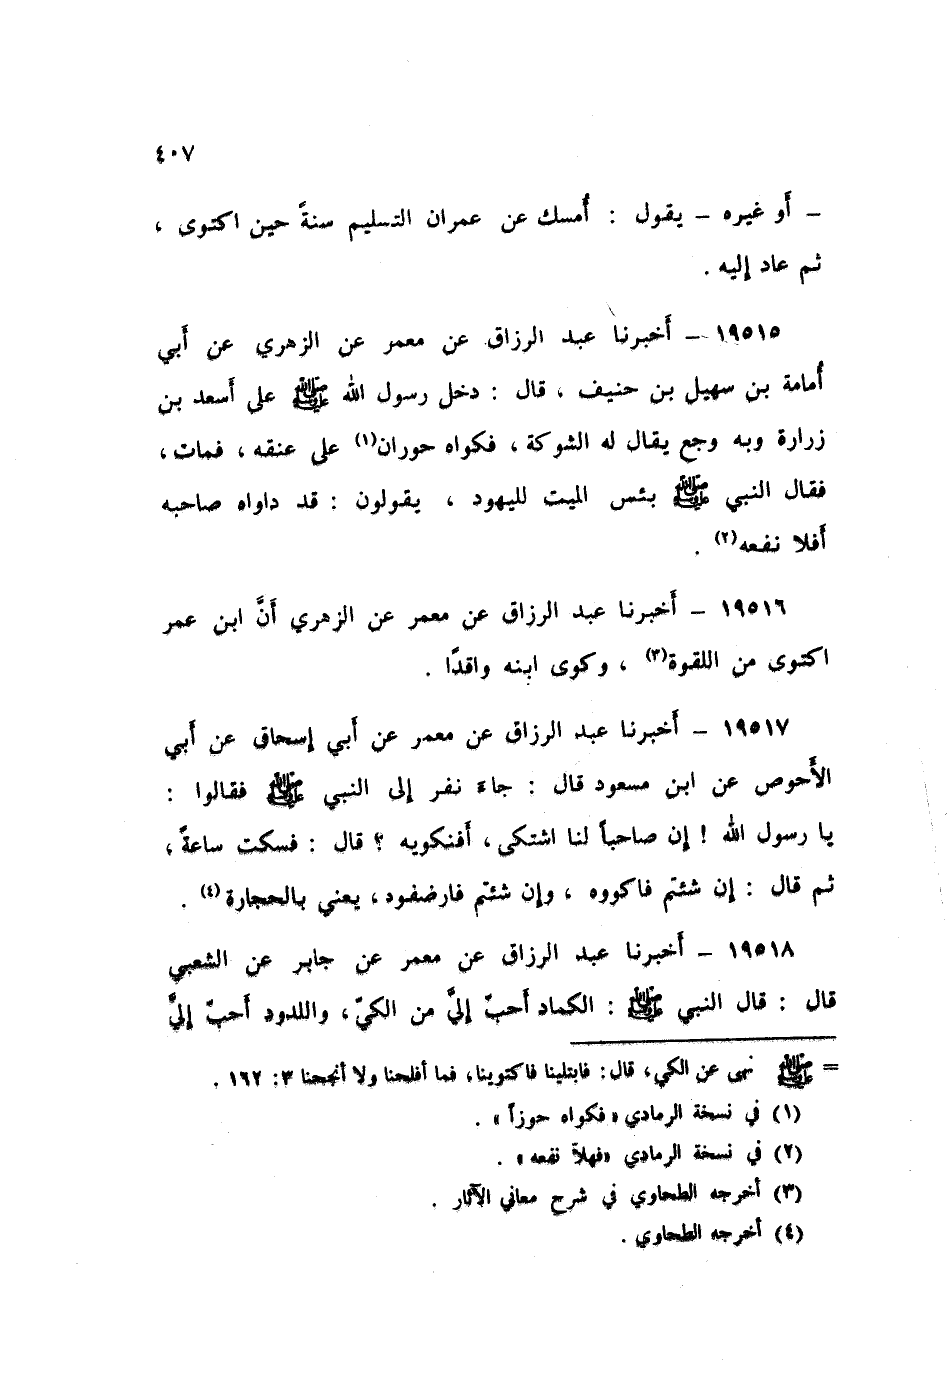 ٤٠٧
ـ أَو غيره ـ يقول : أُمسك عن عمران التسليم سنةً حين اكتوى ،
ثم عاد إليه .
١٩٥١٥ ـ أَخبرنا عبد الرزاق عن معمر عن الزهري عن أَبي
أُمامة بن سهيل بن حنيف ، قال : دخل رسول الله ﷺ على أَسعد بن
زرارة وبه وجع يقال له الشوكة ، فكواه حوران(١) على عنقه ، فمات ،
فقال النبي ﷺ بئس الميت لليهود ، يقولون : قد داواه صاحبه
أَفلا نفعه(٢) .
١٩٥١٦ ـ أَخبرنا عبد الرزاق عن معمر عن الزهري أَنَّ ابن عمر
اكتوى من اللقوة(٣) ، وكوى ابنه واقدًا .
١٩٥١٧ ـ أَخبرنا عبد الرزاق عن معمر عن أَبي إسحاق عن أَبي
الأَحوص عن ابن مسعود قال : جاءَ نفر إلى النبي ﷺ فقالوا :
يا رسول الله ! إن صاحباً لنا اشتكى ، أَفنكويه ؟ قال : فسكت ساعةً ،
ثم قال : إن شئتم فاكووه ، وإن شئتم فارضفود ، يعني بالحجارة(٤) .
١٩٥١٨ ـ أَخبرنا عبد الرزاق عن معمر عن جابر عن الشعبي
قال : قال النبي ﷺ : الكماد أَحبّ إليَّ من الكيّ ، واللدود أَحبّ إليَّ
= ﷺ نهى عن الكي، قال: فابتلينا فاكتوينا، فما أفلحنا ولا أنجحنا ٣: ١٦٢ .
(١) في نسخة الرمادي «فكواه حوزاً» .
(٢) في نسخة الرمادي «فهلاّ نفعه» .
(٣) أخرجه الطحاوي في شرح معاني الآثار .
(٤) أخرجه الطحاوي .